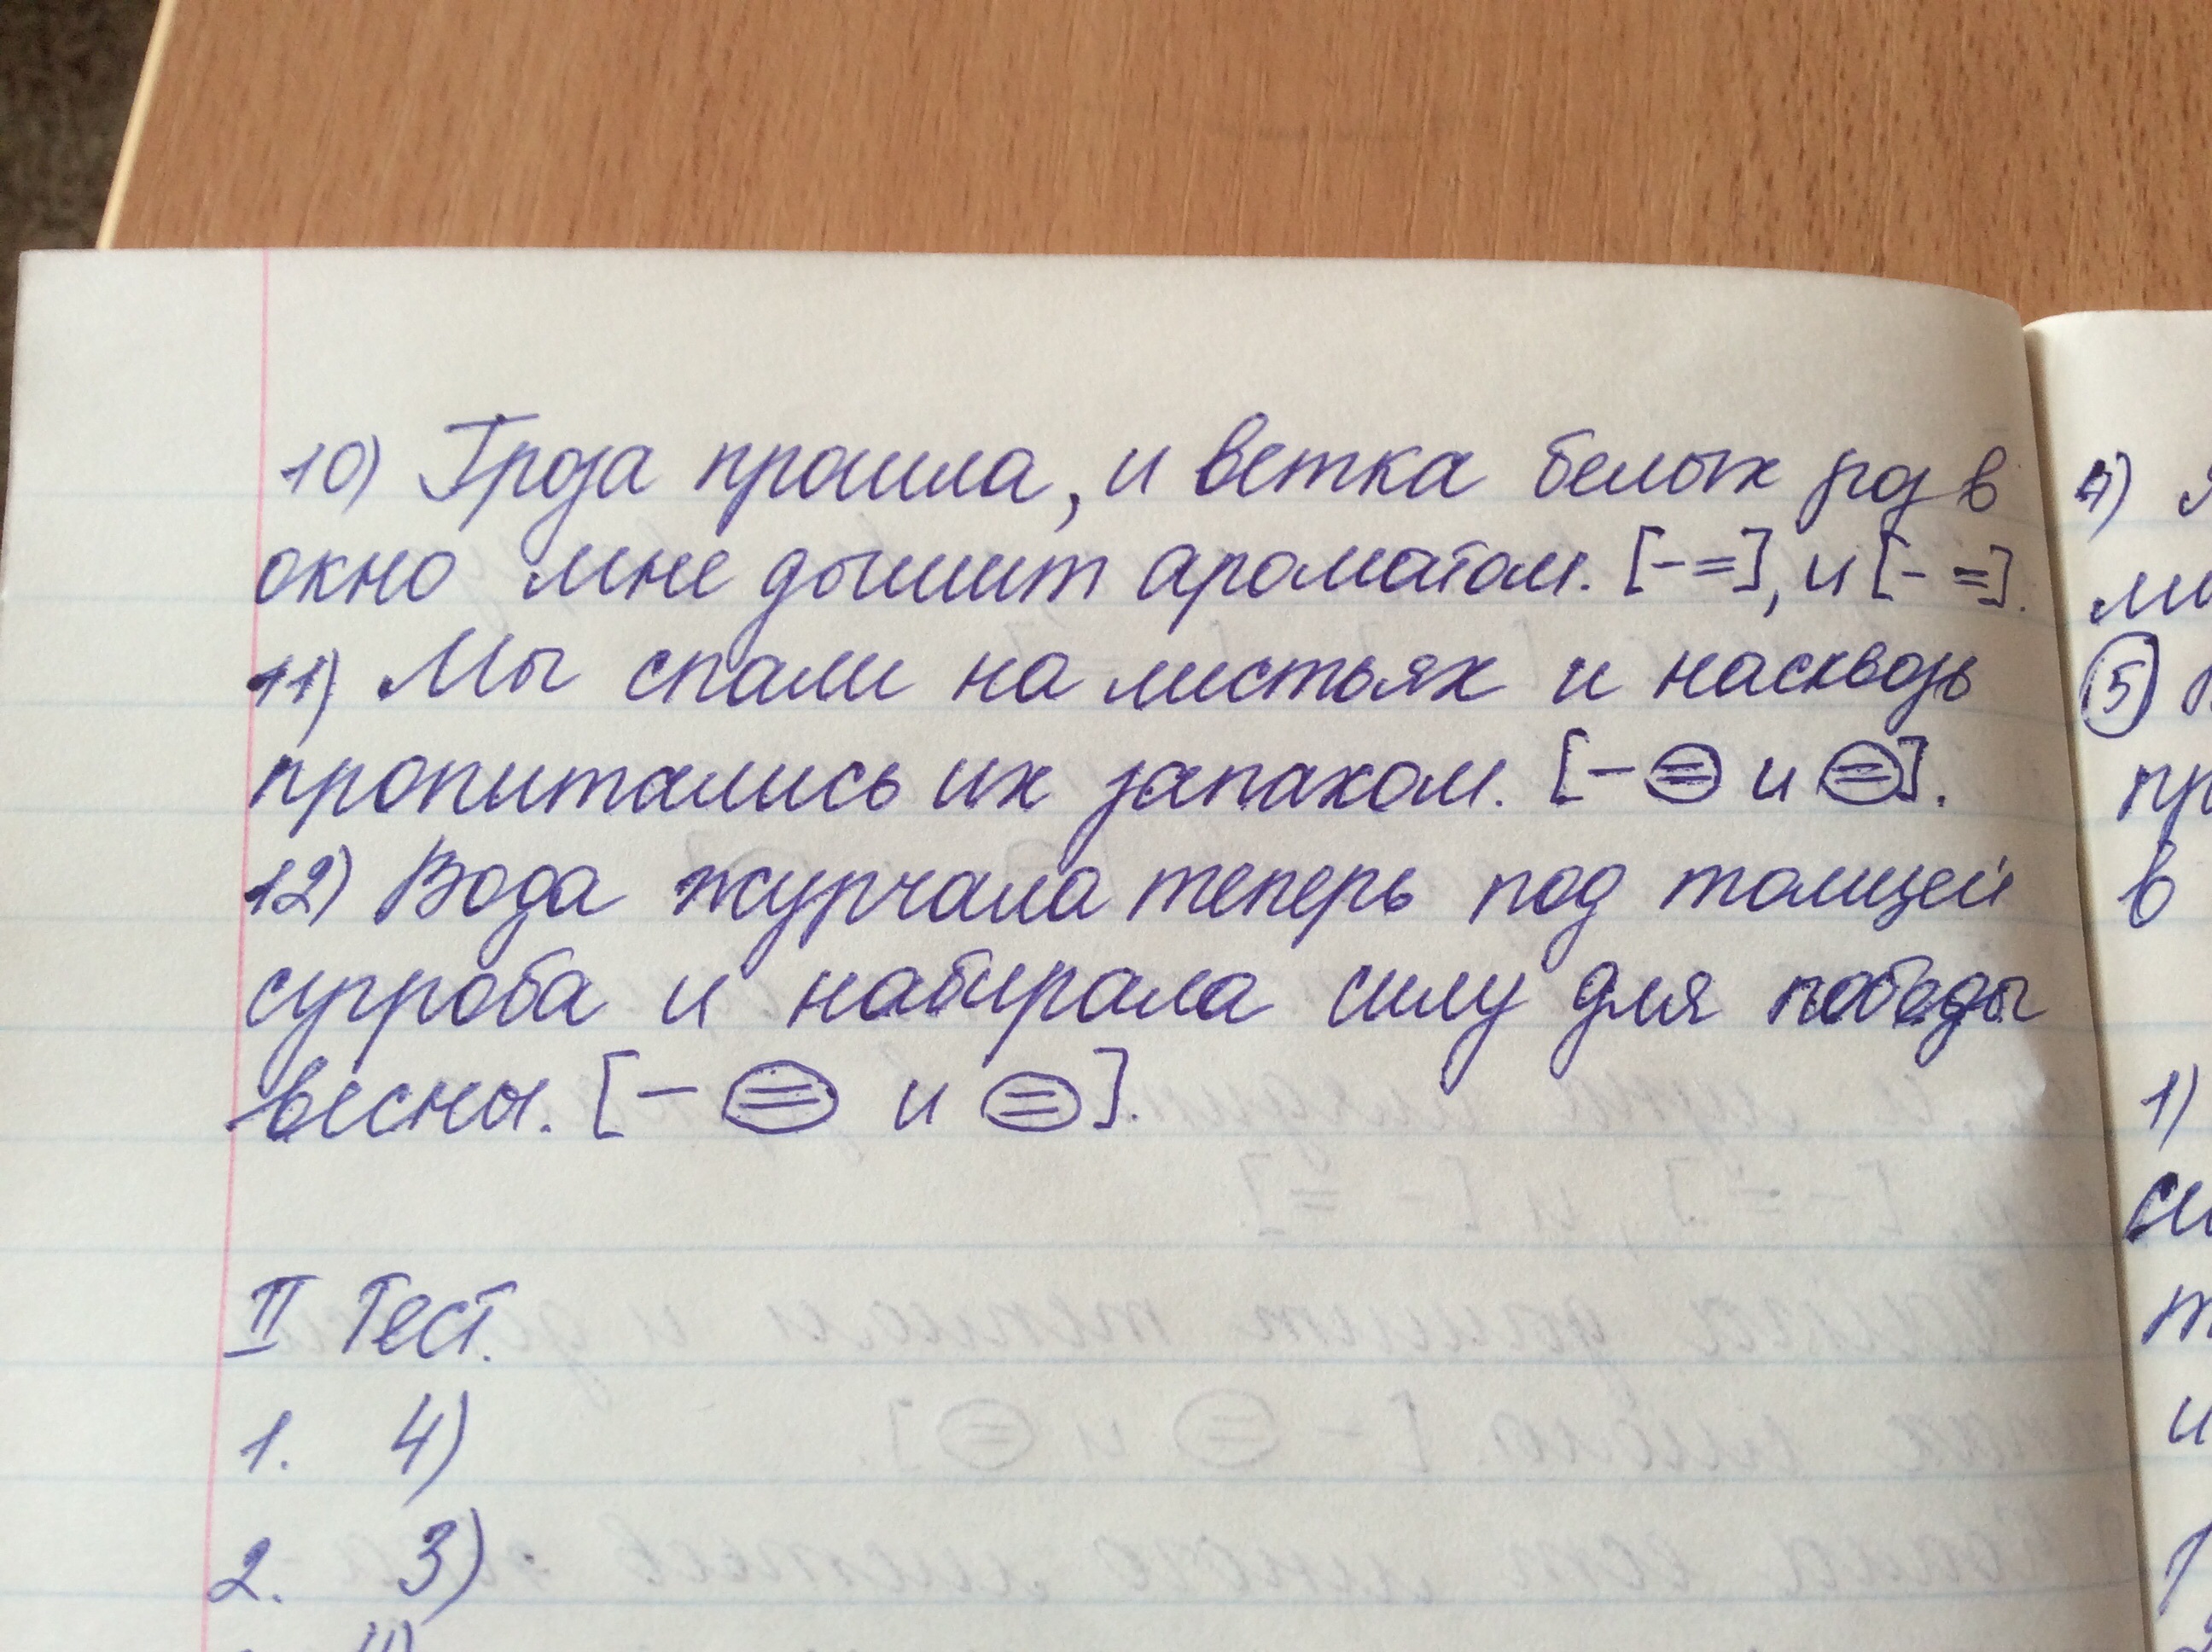 10) Гроза прошла, и ветка белых роз в
окно мне дышит ароматом. [- =], и [- =].
11) Мы спали на листьях и насквозь
пропитались их запахом. [- = и =].
12) Вода журчала теперь под толщей
сугроба и набирала силу для победы
весны. [- = и =].
II Тест.
1. 4)
2. 3)
4)
5
в
1)